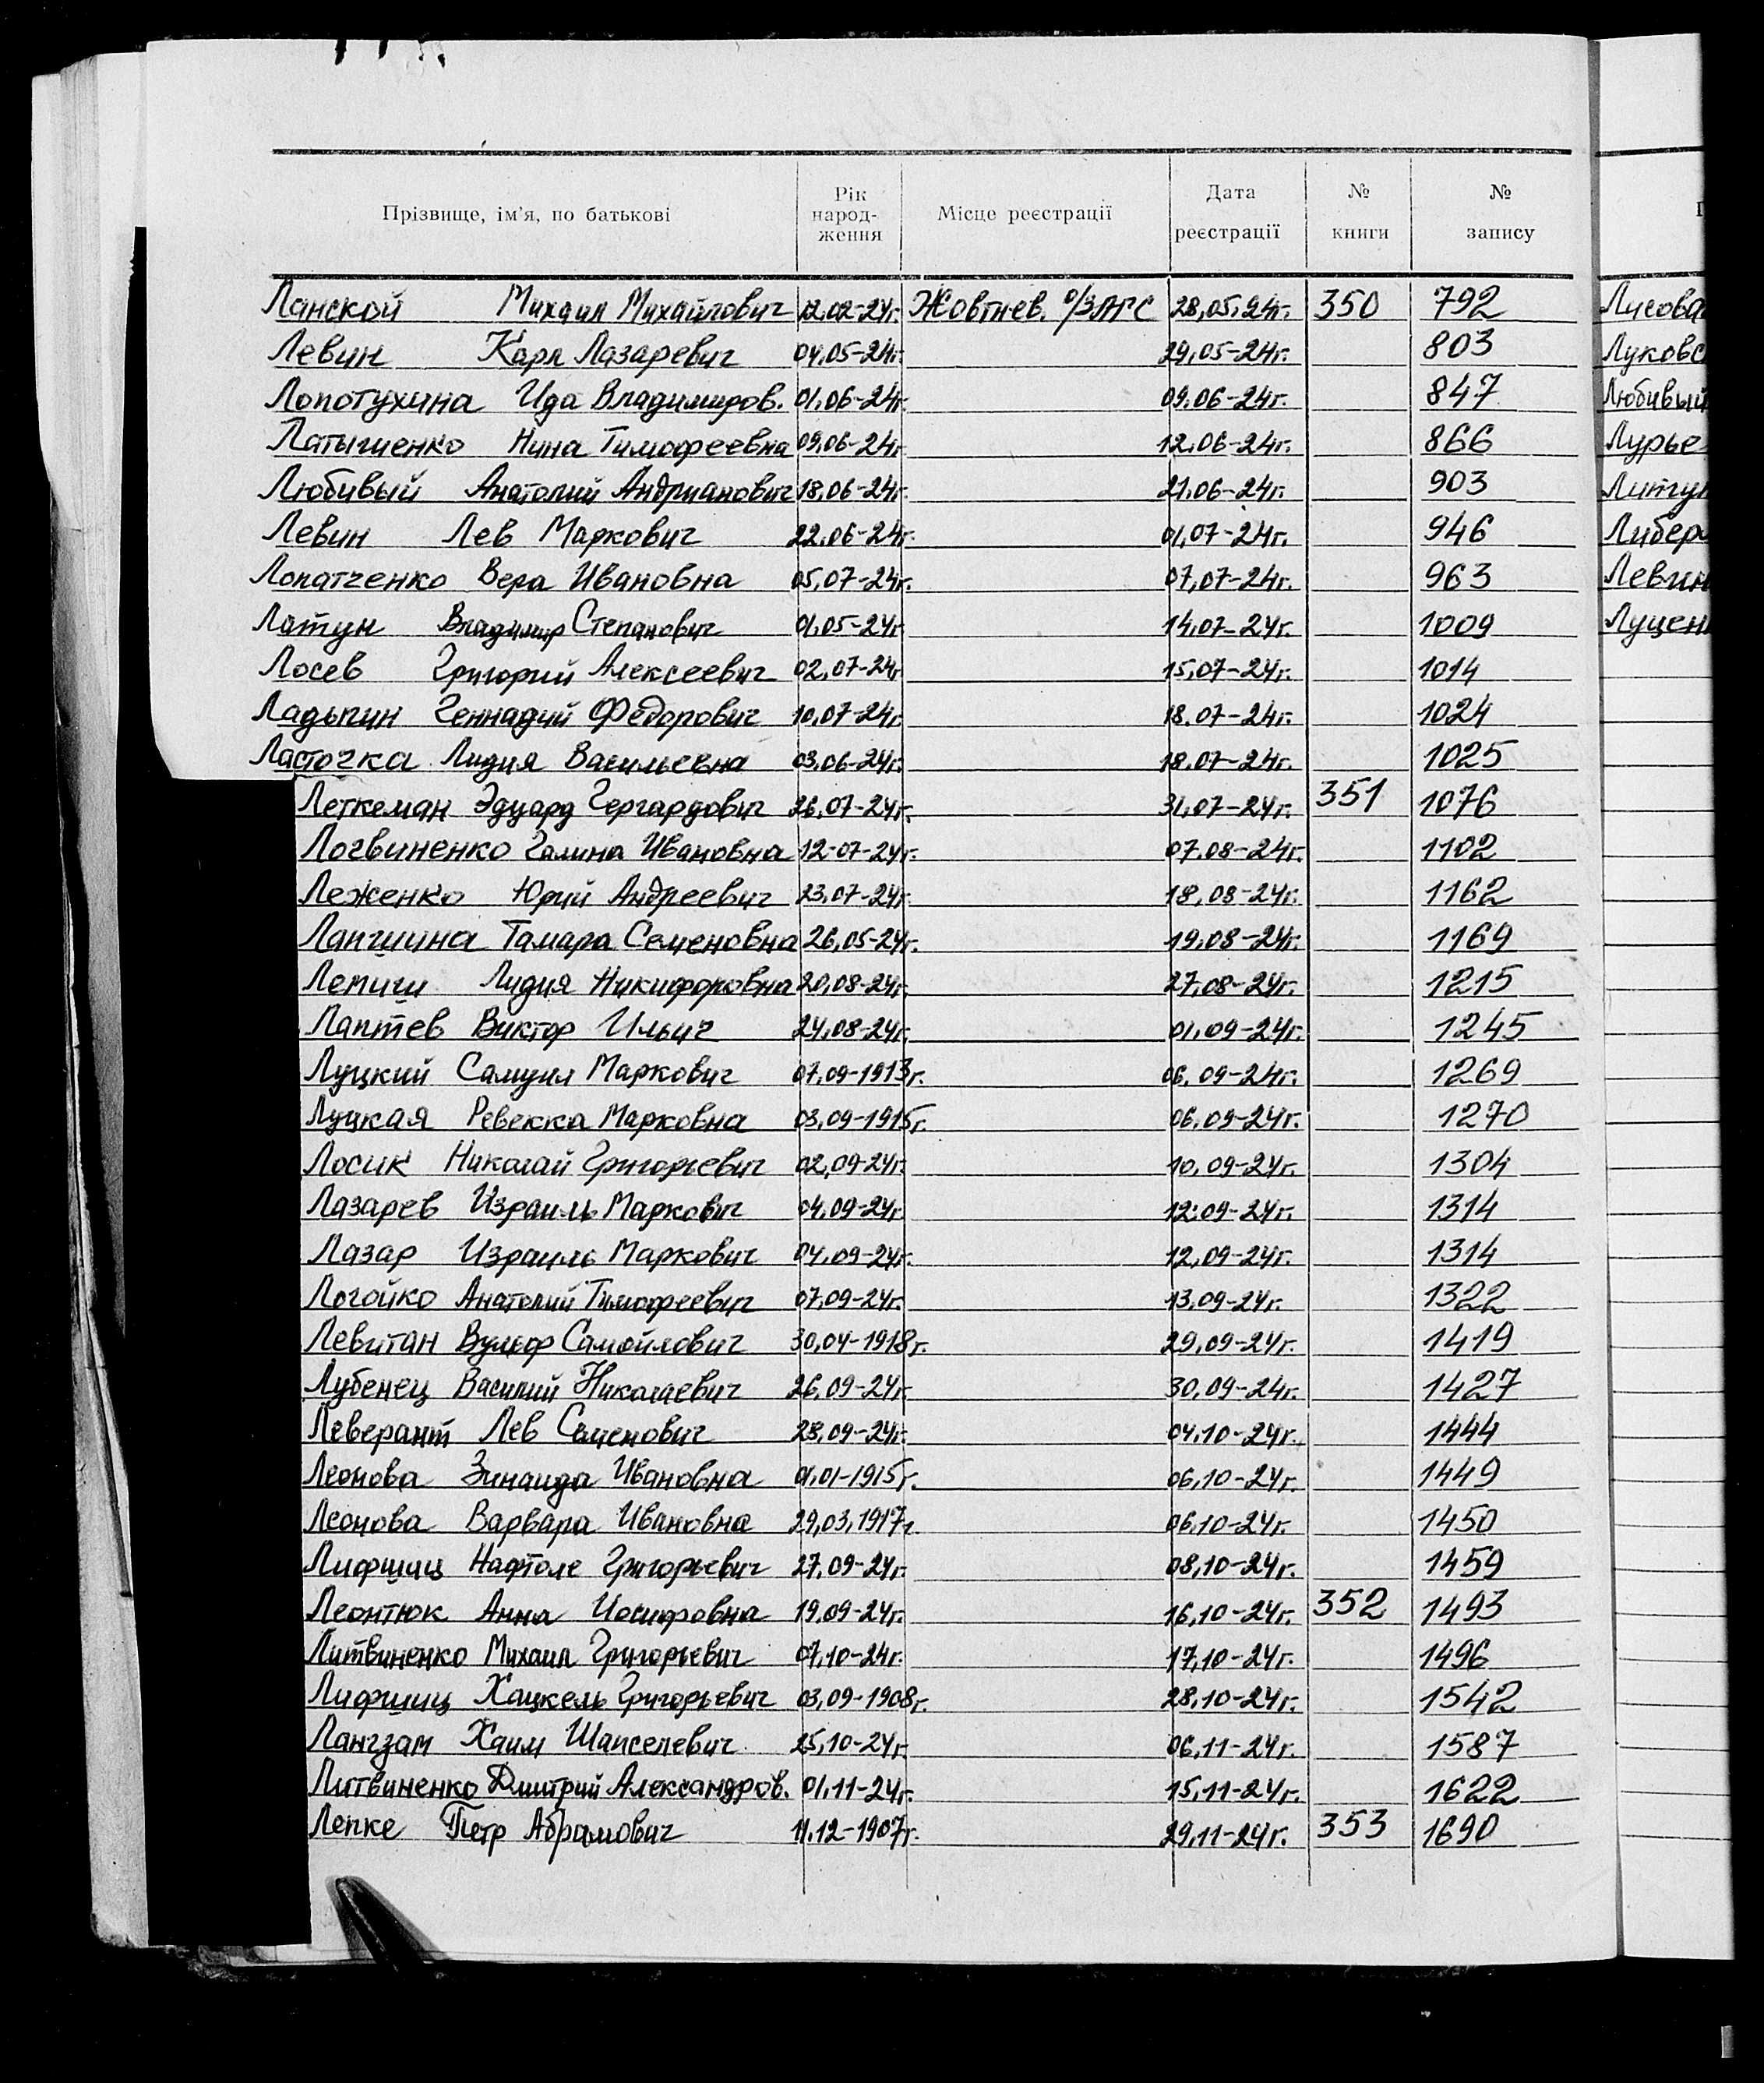 Прізвище, ім’я, по батькові Рік народ-ження Місце реєстрації Дата реєстрації № книги № запису
Ланской Михаил Михайлович 12.02-24г. Жовтнев. о/ЗАГС 28.05.24г. 350 792
Левин Карл Лазаревич 04.05-24г. 29.05-24г. 803
Лопотухина Ида Владимиров. 01.06-24г. 09.06-24г. 847
Латышенко Нина Тимофеевна 09.06-24г. 12.06-24г. 866
Любивый Анатолий Андрианович 18.06-24г. 21.06-24г. 903
Левин Лев Маркович 22.06-24г. 01.07-24г. 946
Лопатченко Вера Ивановна 05.07-24г. 07.07-24г. 963
Латун Владимир Степанович 01.05-24г. 14.07-24г. 1009
Лосев Григорий Алексеевич 02.07-24г 15.07-24г. 1014
Ладыгин Геннадий Федорович 10.07-24г. 18.07-24г. 1024
Ласточка Лидия Васильевна 03.06-24г. 18.07-24г. 1025
Леткеман Эдуард Гергардович 26.07-24г. 31.07-24г. 351 1076
Логвиненко Галина Ивановна 12-07-24г. 07.08-24г. 1102
Леженко Юрий Андреевич 23.07-24г. 18.08-24г. 1162
Лапшина Тамара Семеновна 26.05-24г. 19.08-24г. 1169
Лемиш Лидия Никифоровна 20.08-24г. 27.08-24г. 1215
Лаптев Виктор Ильич 24.08-24г. 01.09-24г. 1245
Луцкий Самуил Маркович 07.09-1913г. 06.09-24г. 1269
Луцкая Ревекка Марковна 03.09-1915г. 06.09-24г. 1270
Лосик Николай Григорьевич 02.09-24г. 10.09-24г. 1304
Лазарев Израиль Маркович 04.09-24г. 12.09-24г. 1314
Лазар Израиль Маркович 04.09-24г. 12.09-24г. 1314
Логойко Анатолий Тимофеевич 07.09-24г. 13.09-24г. 1322
Левитан Вульф Самойлович 30.04-1918г. 29.09-24г. 1419
Лубенец Василий Николаевич 26.09-24г. 30.09-24г. 1427
Леверант Лев Семенович 28.09-24г. 04.10-24г. 1444
Леонова Зинаида Ивановна 01.01-1915г. 06.10-24г. 1449
Леонова Варвара Ивановна 29.03.1917г. 06.10-24г. 1450
Лифшиц Нафтоле Григорьевич 27.09-24г. 08.10-24г. 1459
Леонтюк Анна Иосифовна 19.09-24г. 16.10-24г. 352 1493
Литвиненко Михаил Григорьевич 07.10-24г. 17.10-24г. 1496
Лифшиц Хацкель Григорьевич 03.09-1908г. 28.10-24г. 1542
Лангзам Хаим Шапселевич 25.10-24г. 06.11-24г. 1587
Литвиненко Дмитрий Александров. 01.11-24г. 15.11-24г. 1622
Лепке Петр Абрамович 11.12-1907г. 29.11-24г. 353 1690
Любивый
Лурье